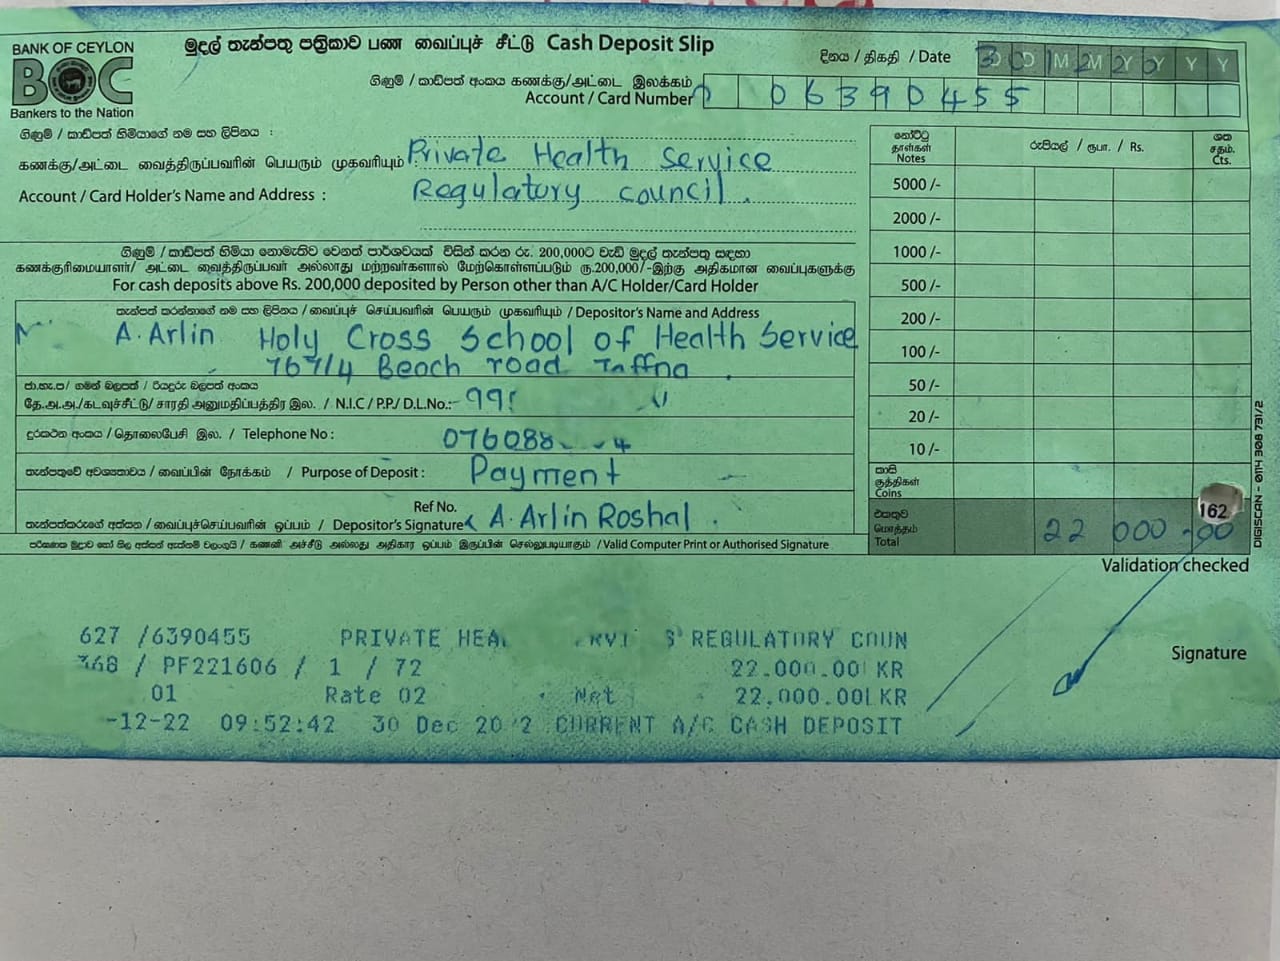 BANK OF CEYLON
BOC
Bankers to the Nation
මුදල් තැන්පතු පත්‍රිකාව பண வைப்புச் சீட்டு Cash Deposit Slip
දිනය / திகதி / Date 30 12 20
D D M M Y Y Y Y
ගිණුම් / කාඩ්පත් අංකය கணக்கு/அட்டை இலக்கம்
Account / Card Number 06390455
ගිණුම් / කාඩ්පත් හිමියාගේ නම සහ ලිපිනය :
கணக்கு/அட்டை வைத்திருப்பவரின் பெயரும் முகவரியும் Private Health Service
Account / Card Holder's Name and Address : Regulatory council.
ගිණුම් / කාඩ්පත් හිමියා නොමැතිව වෙනත් පාර්ශවයක් විසින් කරන රු. 200,000ට වැඩි මුදල් තැන්පතු සඳහා
கணக்குரிமையாளர்/ அட்டை வைத்திருப்பவர் அல்லாது மற்றவர்களால் மேற்கொள்ளப்படும் ரூ.200,000/-இற்கு அதிகமான வைப்புகளுக்கு
For cash deposits above Rs. 200,000 deposited by Person other than A/C Holder/Card Holder
තැන්පත් කරන්නාගේ නම සහ ලිපිනය / வைப்புச் செய்பவரின் பெயரும் முகவரியும் / Depositor's Name and Address
A. Arlin Holy Cross School of Health Service
767/4 Beach road Jaffna.
ජා.හැ.ප/ ගමන් බලපත් / රියදුරු බලපත් අංකය
தே.அ.அ./கடவுச்சீட்டு/ சாரதி அனுமதிப்பத்திர இல. / N.I.C / P.P./ D.L.No.:- 99
දුරකථන අංකය / தொலைபேசி இல. / Telephone No : 076088 4
තැන්පතුවේ අවශ්‍යතාවය / வைப்பின் நோக்கம் / Purpose of Deposit : Payment
Ref No.
තැන්පත්කරුගේ අත්සන / வைப்புச்செய்பவரின் ஒப்பம் / Depositor's Signature A. Arlin Roshal.
කணනි அச்சீடு அல்லது அதிகார ஒப்பம் இருப்பின் செல்லுபடியாகும் / Valid Computer Print or Authorised Signature
නෝට්ටු
தாள்கள்
Notes
රුපියල් / ரூபா. / Rs.
ශත
சதம்.
Cts.
5000 /-
2000 /-
1000 /-
500 /-
200 /-
100 /-
50 /-
20 /-
10 /-
කාසි
குத்திகள்
Coins
162
එකතුව
மொத்தம்
Total 22 000 -00
DIGISCAN - 0114 308 731/2
Validation checked
Signature
627 /6390455 PRIVATE HEA S REGULATORY COUN
368 / PF221606 / 1 / 72 22.000.00LKR
01 Rate 02 Net 22,000.00LKR
-12-22 09:52:42 30 Dec 20 2 CURRENT A/C CASH DEPOSIT